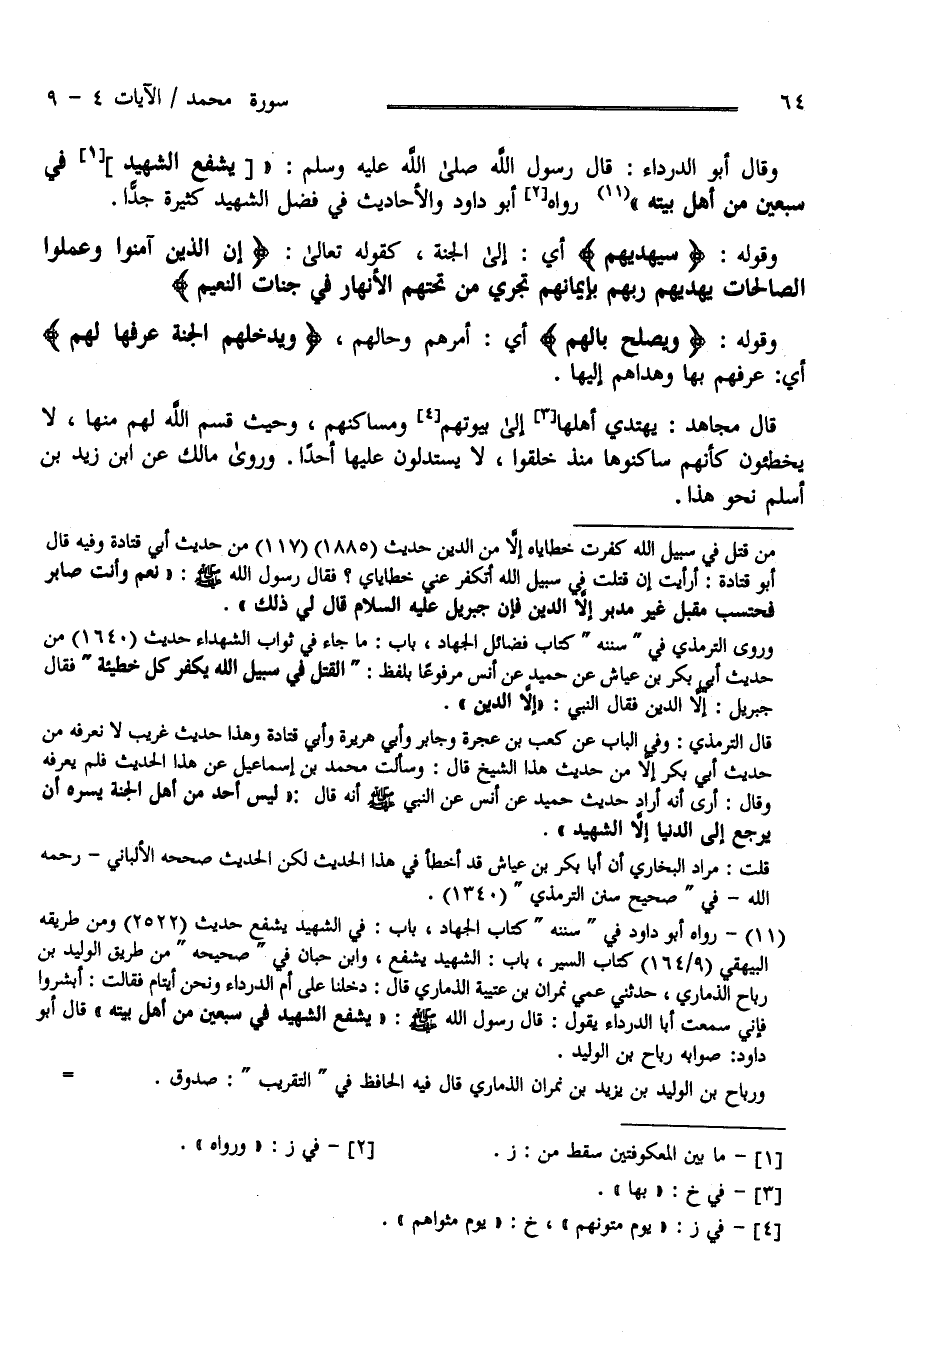 ٦٤ سورة محمد / الآيات ٤ - ٩
وقال أبو الدرداء : قال رسول اللَّه صلىٰ اللَّه عليه وسلم : « [ يشفع الشهيد ][١] في
سبعين من أهل بيته »(١١) رواه[٢] أبو داود والأحاديث في فضل الشهيد كثيرة جدًّا .
وقوله : ﴿ سيهديهم ﴾ أي : إلىٰ الجنة ، كقوله تعالىٰ : ﴿ إن الذين آمنوا وعملوا
الصالحات يهديهم ربهم بإيمانهم تجري من تحتهم الأنهار في جنات النعيم ﴾
وقوله : ﴿ ويصلح بالهم ﴾ أي : أمرهم وحالهم ، ﴿ ويدخلهم الجنة عرفها لهم ﴾
أي: عرفهم بها وهداهم إليها .
قال مجاهد : يهتدي أهلها[٣] إلىٰ بيوتهم[٤] ومساكنهم ، وحيث قسم اللَّه لهم منها ، لا
يخطئون كأنهم ساكنوها منذ خلقوا ، لا يستدلون عليها أحدًا . وروىٰ مالك عن ابن زيد بن
أسلم نحو هذا .
من قتل في سبيل الله كفرت خطاياه إلَّا من الدين حديث (١٨٨٥) (١١٧) من حديث أبي قتادة وفيه قال
أبو قتادة : أرأيت إن قتلت في سبيل الله أتكفر عني خطاياي ؟ فقال رسول الله ﷺ : « نعم وأنت صابر
فحتسب مقبل غير مدبر إلَّا الدين فإن جبريل عليه السلام قال لي ذلك » .
وروى الترمذي في " سننه " كتاب فضائل الجهاد ، باب : ما جاء في ثواب الشهداء حديث (١٦٤٠) من
حديث أبي بكر بن عياش عن حميد عن أنس مرفوعًا بلفظ : " القتل في سبيل الله يكفر كل خطيئة " فقال
جبريل : إلَّا الدين فقال النبي : «إلَّا الدين » .
قال الترمذي : وفي الباب عن كعب بن عجرة وجابر وأبي هريرة وأبي قتادة وهذا حديث غريب لا نعرفه من
حديث أبي بكر إلَّا من حديث هذا الشيخ قال : وسألت محمد بن إسماعيل عن هذا الحديث فلم يعرفه
وقال : أرى أنه أراد حديث حميد عن أنس عن النبي ﷺ أنه قال :« ليس أحد من أهل الجنة يسره أن
يرجع إلى الدنيا إلَّا الشهيد » .
قلت : مراد البخاري أن أبا بكر بن عياش قد أخطأ في هذا الحديث لكن الحديث صححه الألباني - رحمه
الله - في " صحيح سنن الترمذي " (١٣٤٠) .
(١١) - رواه أبو داود في " سننه " كتاب الجهاد ، باب : في الشهيد يشفع حديث (٢٥٢٢) ومن طريقه
البيهقي (١٦٤/٩) كتاب السير ، باب : الشهيد يشفع ، وابن حبان في " صحيحه " من طريق الوليد بن
رباح الذماري ، حدثني عمي نمران بن عتيبة الذماري قال : دخلنا على أم الدرداء ونحن أيتام فقالت : أبشروا
فإني سمعت أبا الدرداء يقول : قال رسول الله ﷺ : « يشفع الشهيد في سبعين من أهل بيته » قال أبو
داود: صوابه رباح بن الوليد .
ورباح بن الوليد بن يزيد بن نمران الذماري قال فيه الحافظ في " التقريب " : صدوق . =
[١] - ما بين المعكوفتين سقط من : ز . [٢] - في ز : « ورواه » .
[٣] - في خ : « بها » .
[٤] - في ز : « يوم متونهم » ، خ : « يوم مثواهم » .